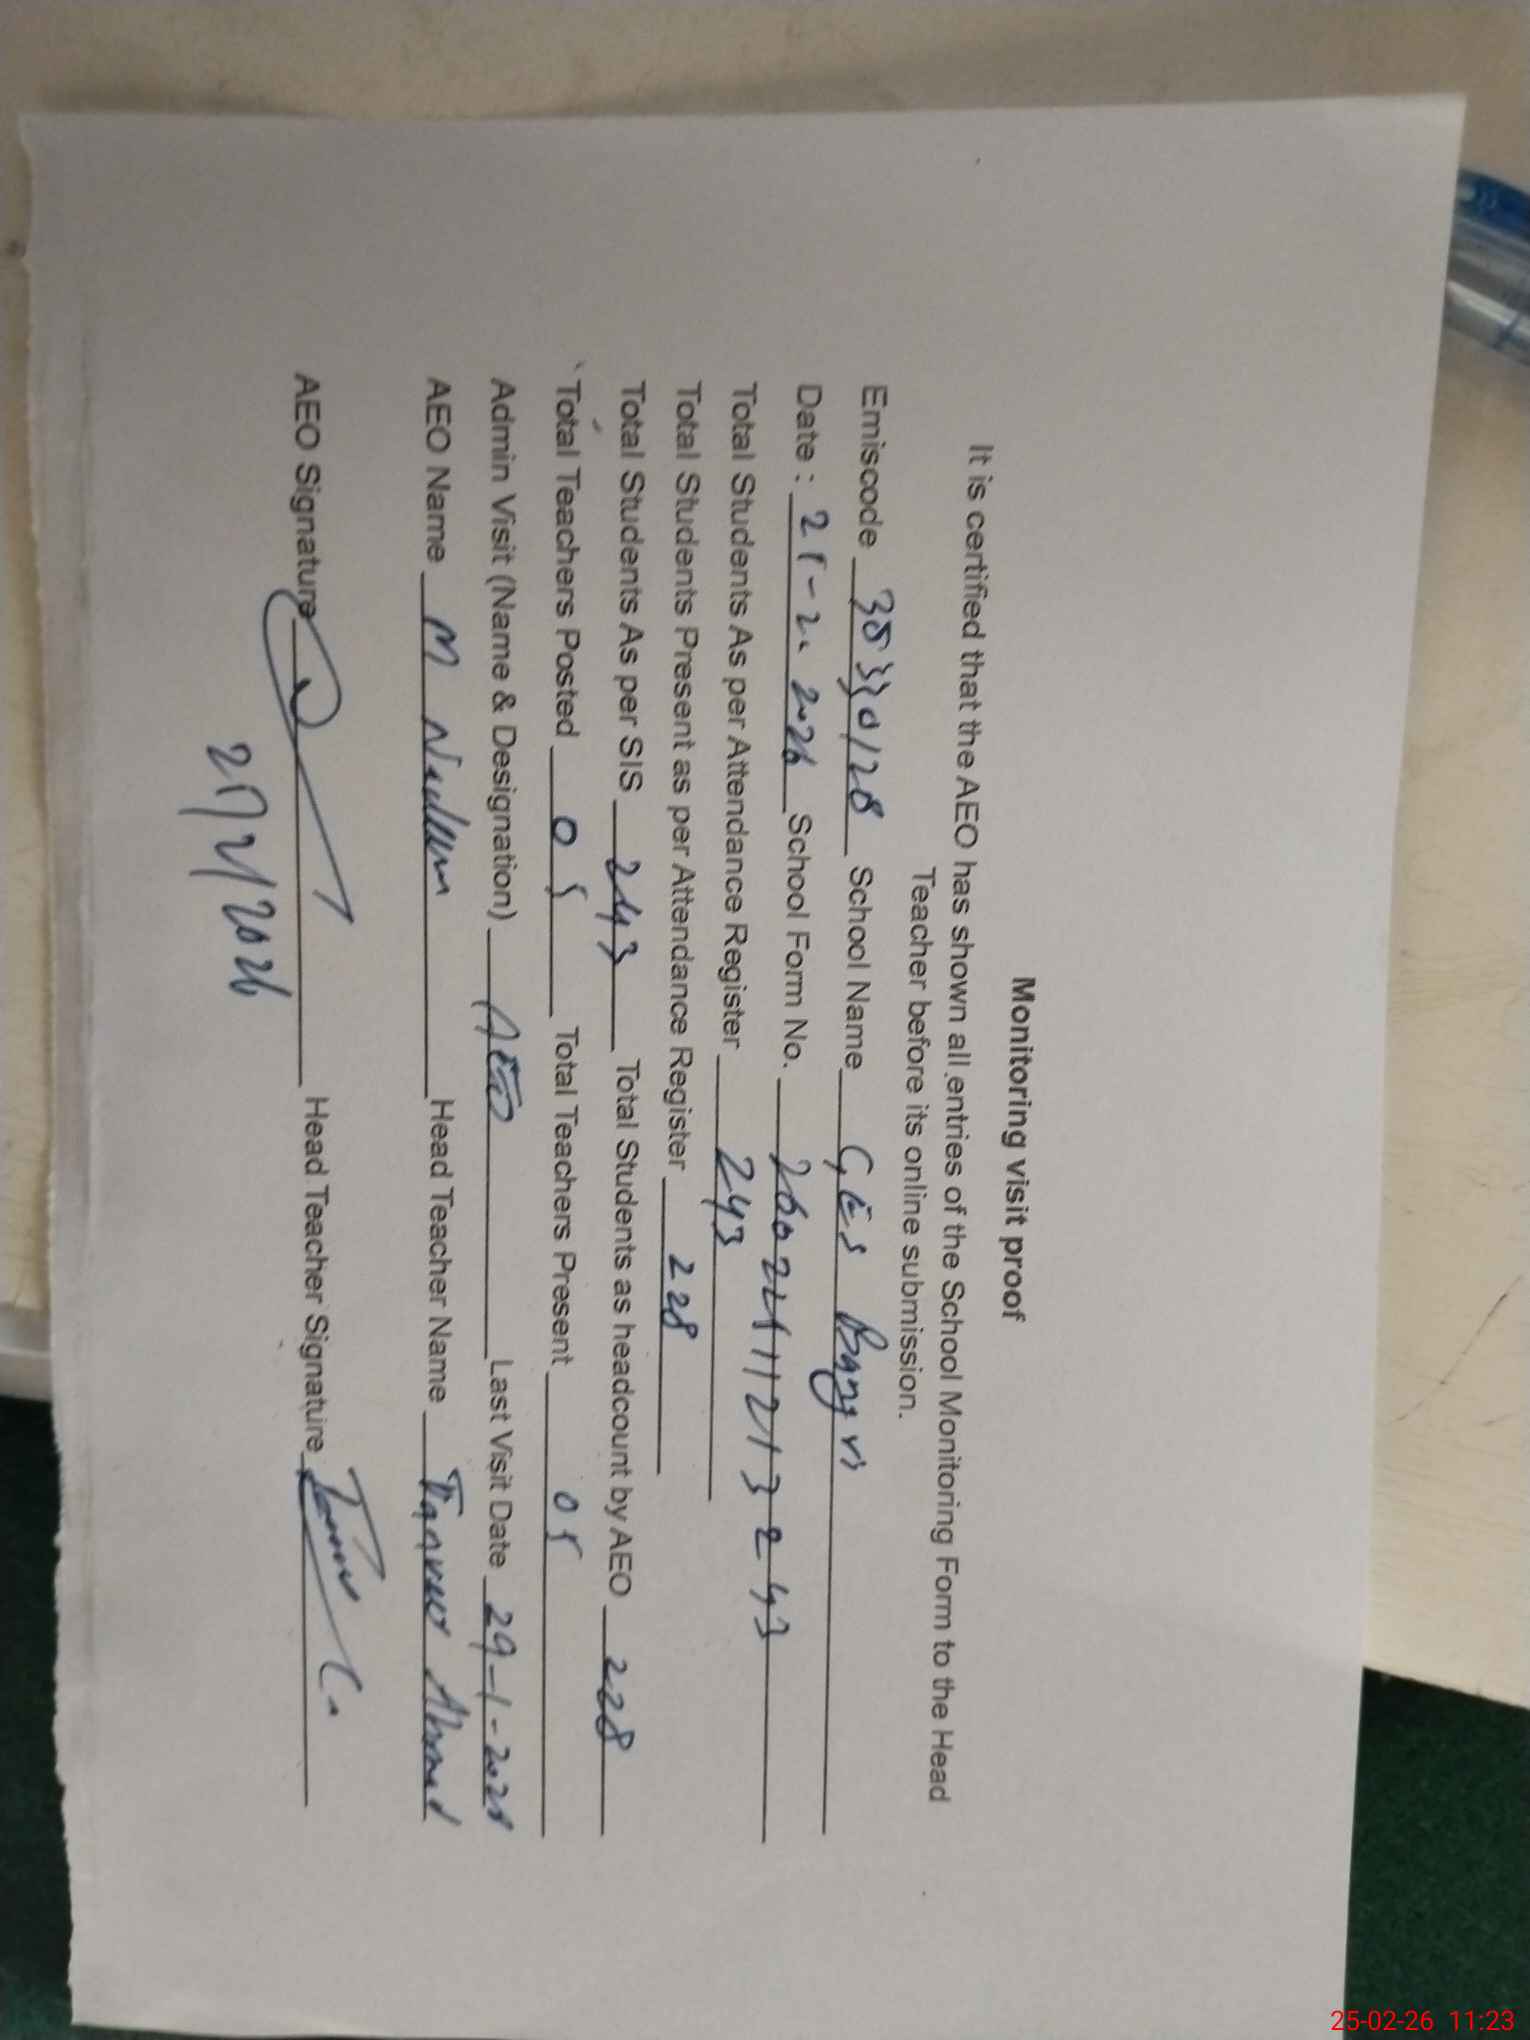 Monitoring visit proof
It is certified that the AEO has shown all entries of the School Monitoring Form to the Head
Teacher before its online submission.
Emiscode 38330128 School Name GES
Date : 2026 School Form No.
Total Students As per Attendance Register 243
Total Students Present as per Attendance Register 228
Total Students As per SIS 243 Total Students as headcount by AEO 228
Total Teachers Posted 05 Total Teachers Present 05
Admin Visit (Name & Designation) AEO Last Visit Date 29-1-
AEO Name M Head Teacher Name Ahmad
AEO Signature Head Teacher Signature
25-02-26 11:23